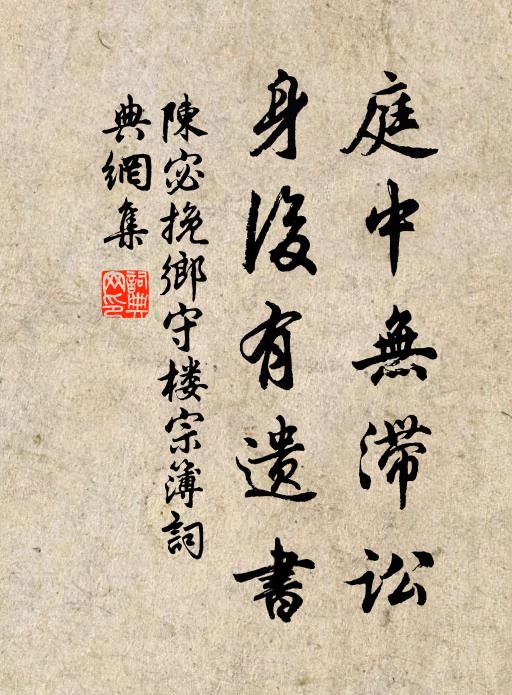 庭中無滯訟
身後有遺書
陳宓挽鄉守楼宗簿詞
典網集
詞典網印